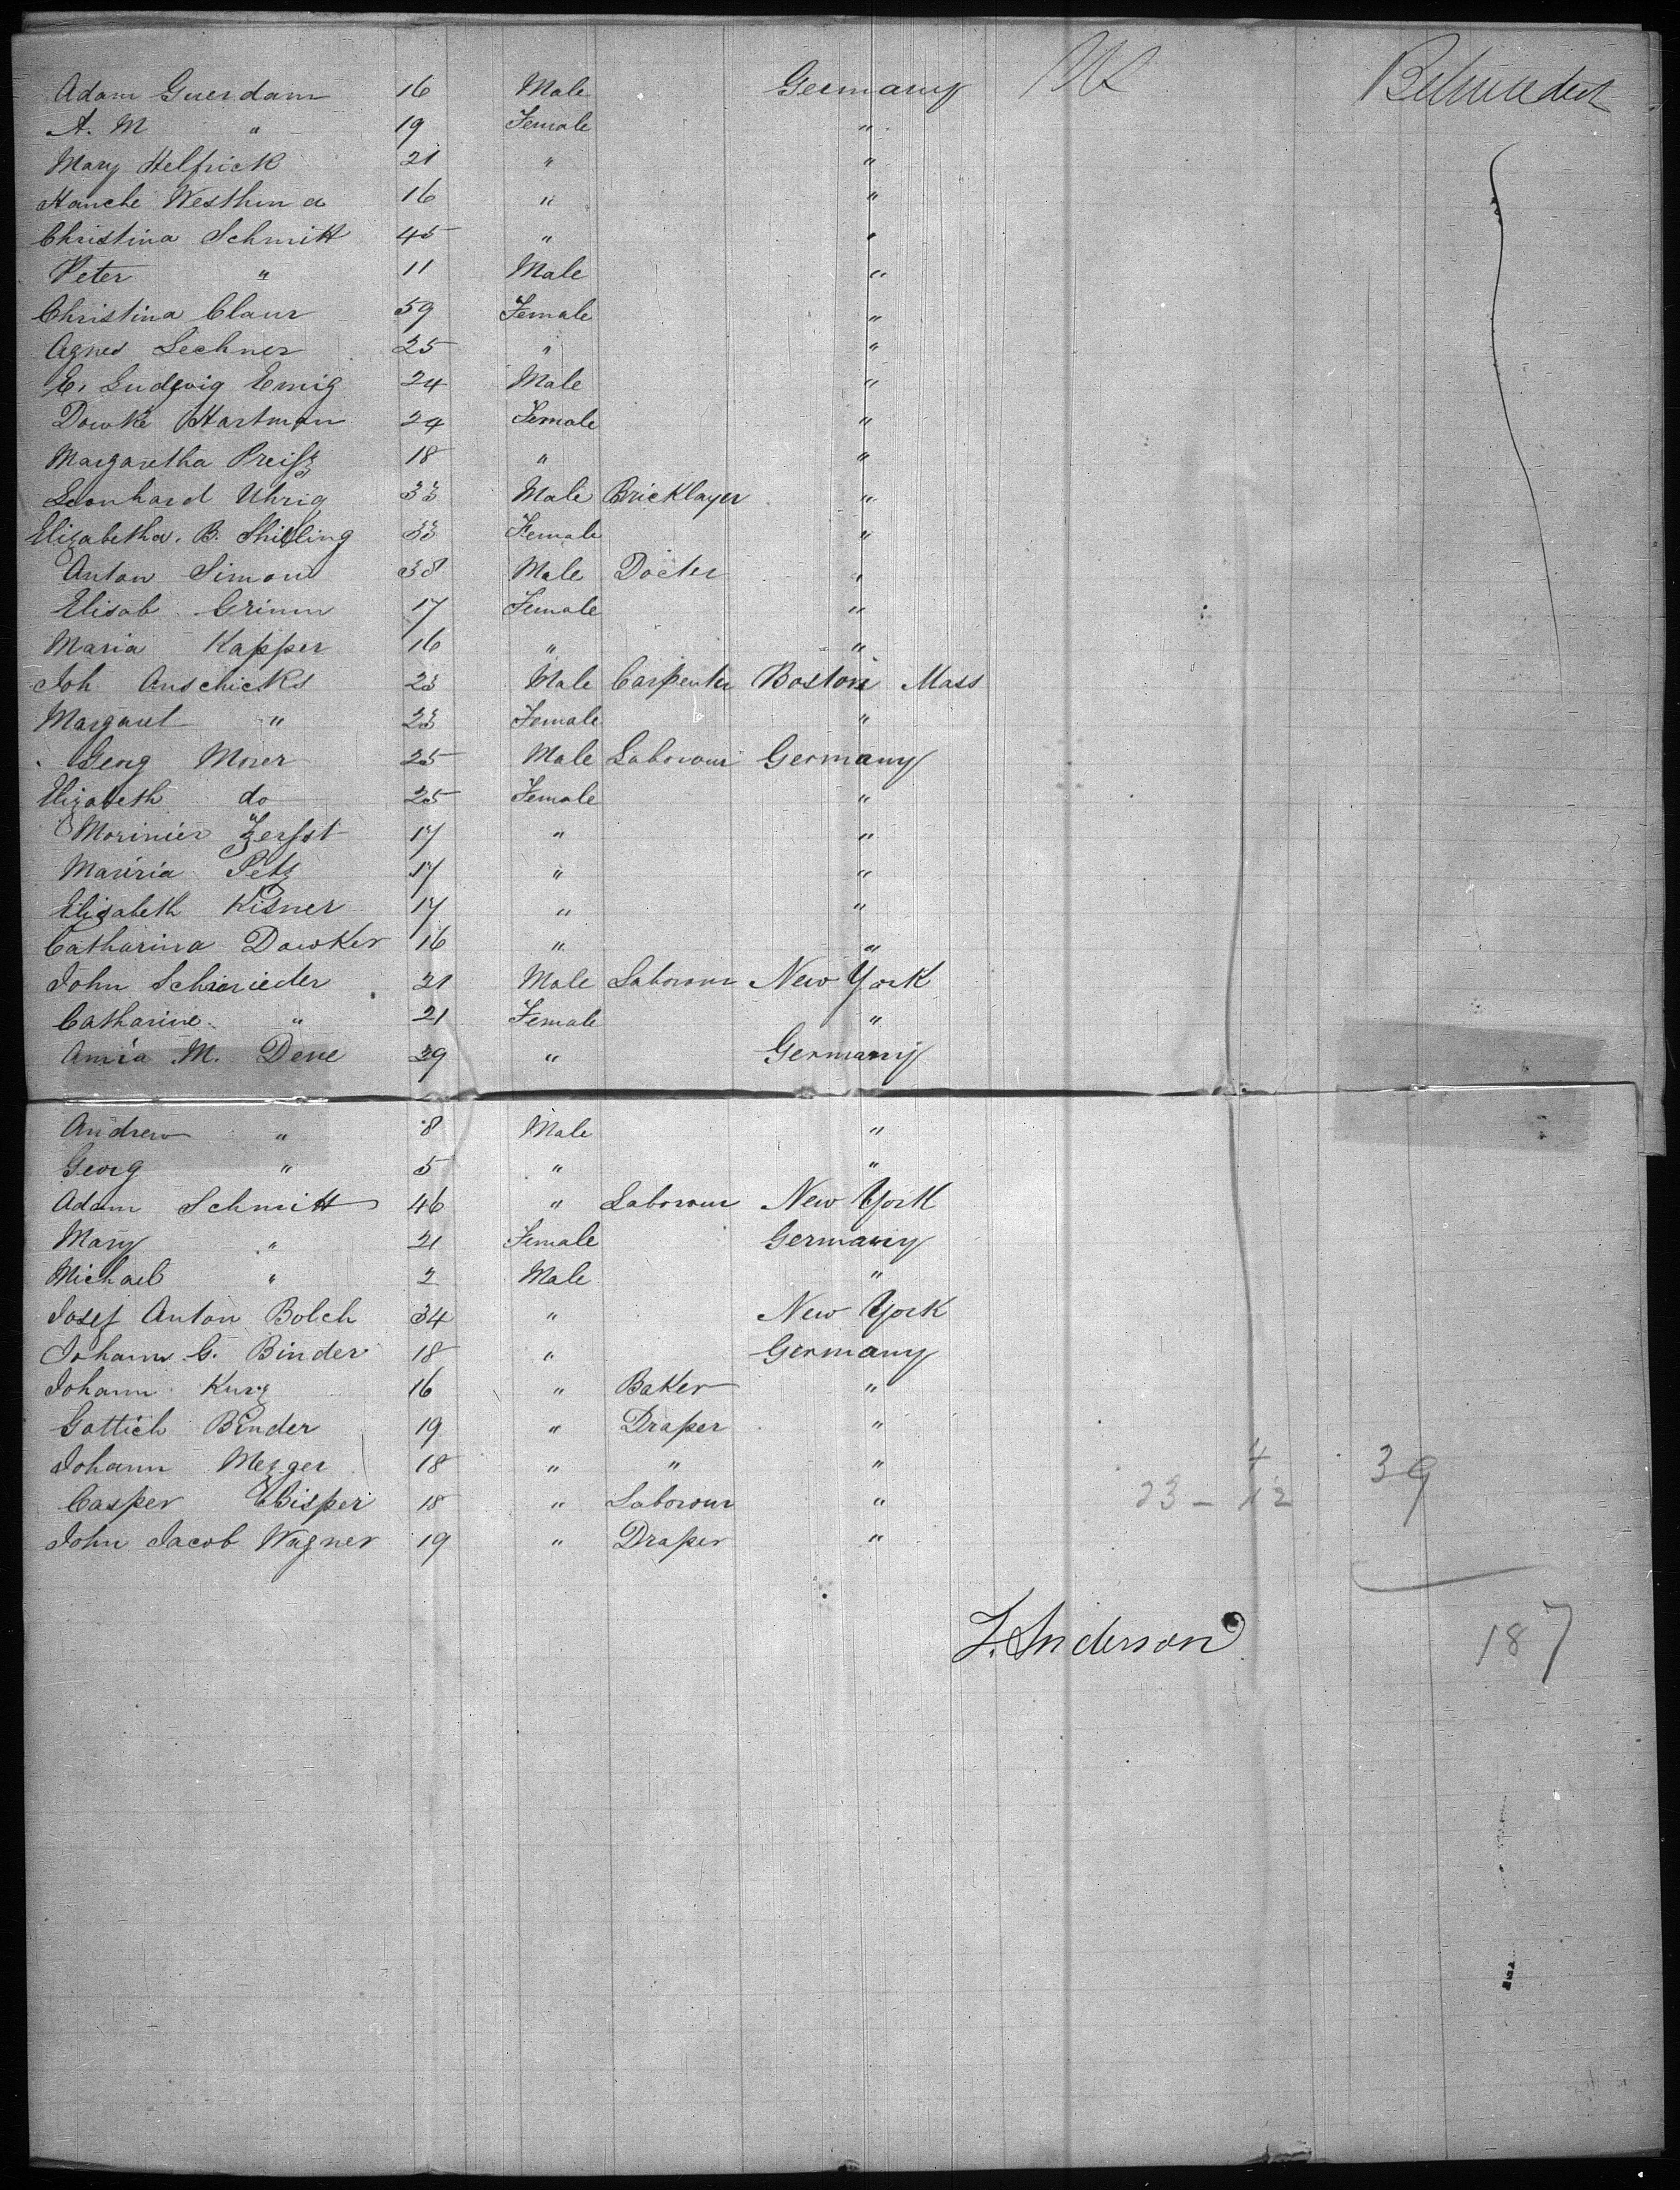 Adam Guerdam 16 Male Germany US Between deck
A. M " 19 Female "
Mary Helfrick 21 " "
Hanche Westhun a 16 " "
Christina Schmitt 45 " "
Peter " 11 Male "
Christina Claur 59 Female "
Agnes Lechner 25 " "
E. Ludwig Emig 24 Male "
Dowke Hartman 24 Female "
Margaretha Preisz 18 " "
Leonhard Uhrig 33 Male Bricklayer "
Elizabetha. B. Shilling 33 Female "
Anton Simon 38 Male Docter "
Elisab Grimm 17 Female "
Maria Kapper 16 " "
Joh Anschicks 23 Male Carpenter Boston Mass
Margaret " 23 Female "
Georg Moser 25 Male Labourour Germany
Elizabeth do 25 Female "
Morinier Zerfst 17 " "
Maria Petz 17 " "
Elizabeth Kisner 17 " "
Catharina Dowker 16 " "
John Schneider 21 Male Laborour New York
Catharine " 21 Female "
Amia M. Dene 29 " Germany
Andrew " 8 Male "
Georg " 5 " "
Adam Schmitt 46 " Laborour New York
Mary " 21 Female Germany
Michael " 2 Male "
Josef Anton Bolch 34 " New York
Johann G. Binder 18 " Germany
Johann Kurz 16 " Baker "
Gottich Binder 19 " Draper "
Johann Mezger 18 " " " 4 39
Casper Bisper 18 " Laborour " 23 - 12
John Jacob Wagner 19 " Draper "
J. Anderson 187